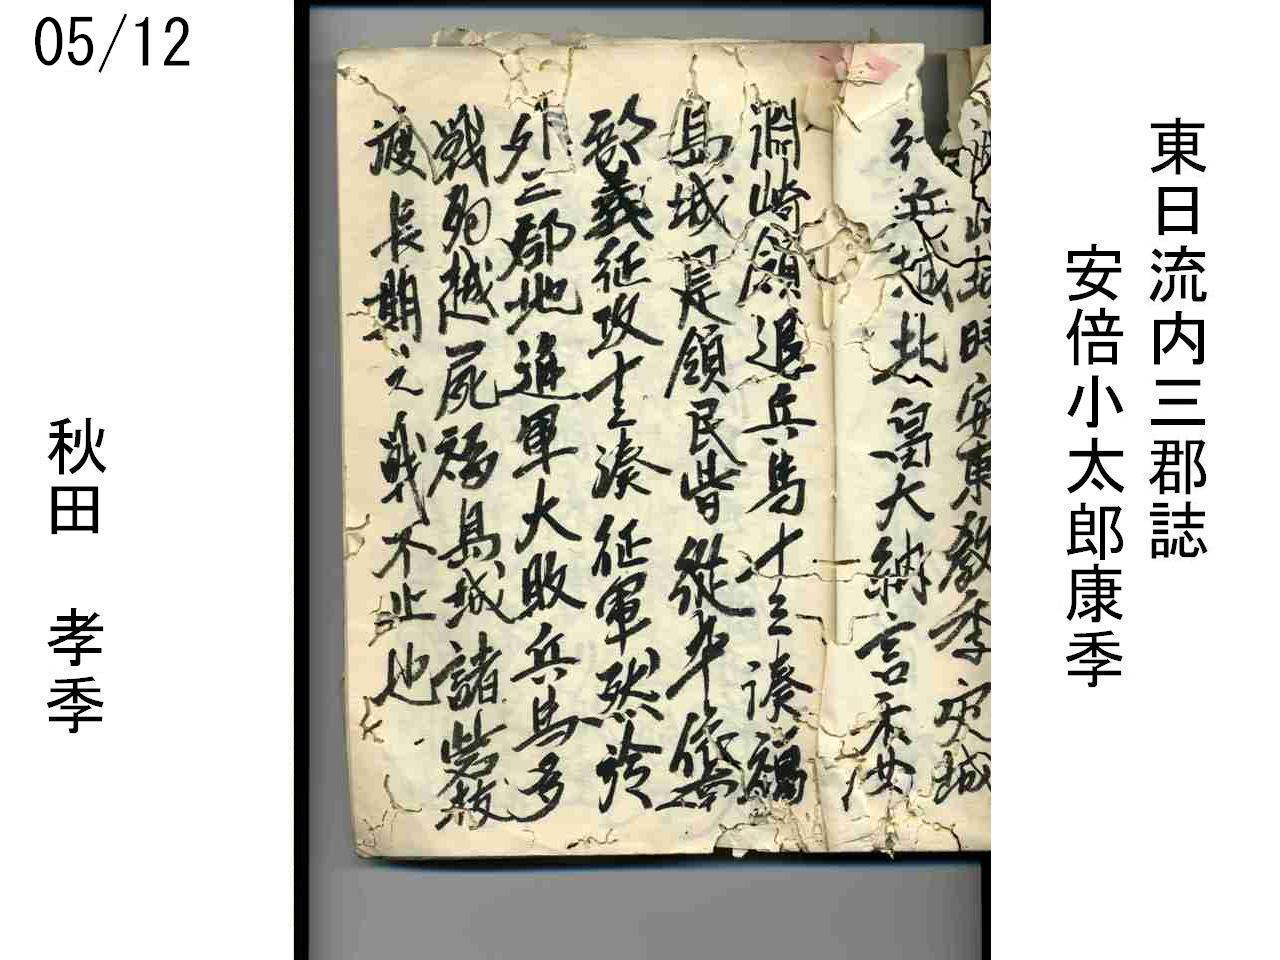 05/12
東日流内三郡誌
安倍小太郎康季
崎城時安東教季安城
行兵越北畠大納言
渕崎領退兵馬十三湊福
島城是領民皆従
義征攻十三湊征軍然
外三郡地進軍大敗兵馬多
戦殉越死福島城諸
渡長期之戦不止也
秋田 孝季